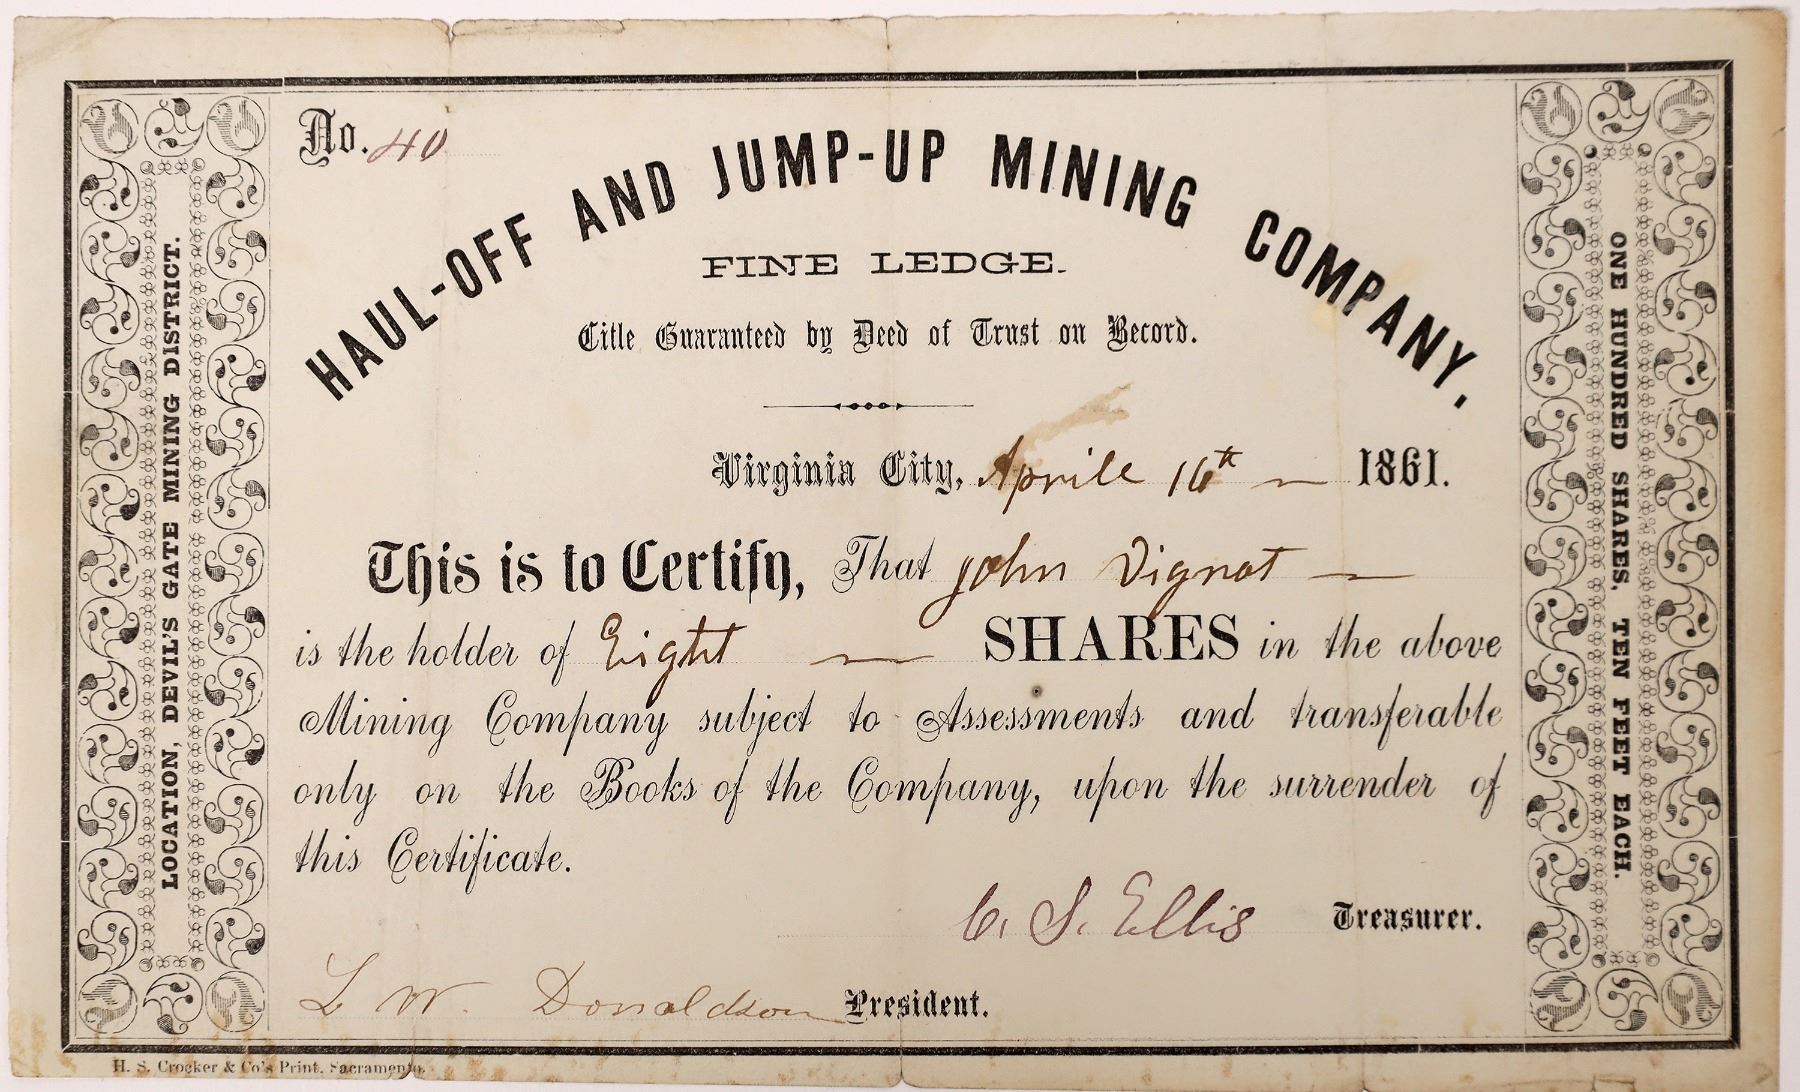 No. 40
HAUL-OFF AND JUMP-UP MINING COMPANY.
FINE LEDGE.
Title Guaranteed by Deed of Trust on Record.
Virginia City, Aprill 16th 1861.
This is to Certify, That john Vignot
is the holder of Eight SHARES in the above
Mining Company subject to Assessments and transferable
only on the Books of the Company, upon the surrender of
this Certificate.
C. S. Ellis Treasurer.
L W. Donaldson President.
LOCATION, DEVIL'S GATE MINING DISTRICT.
ONE HUNDRED SHARES, TEN FEET EACH.
H. S. Crocker & Co's Print, Sacramento.